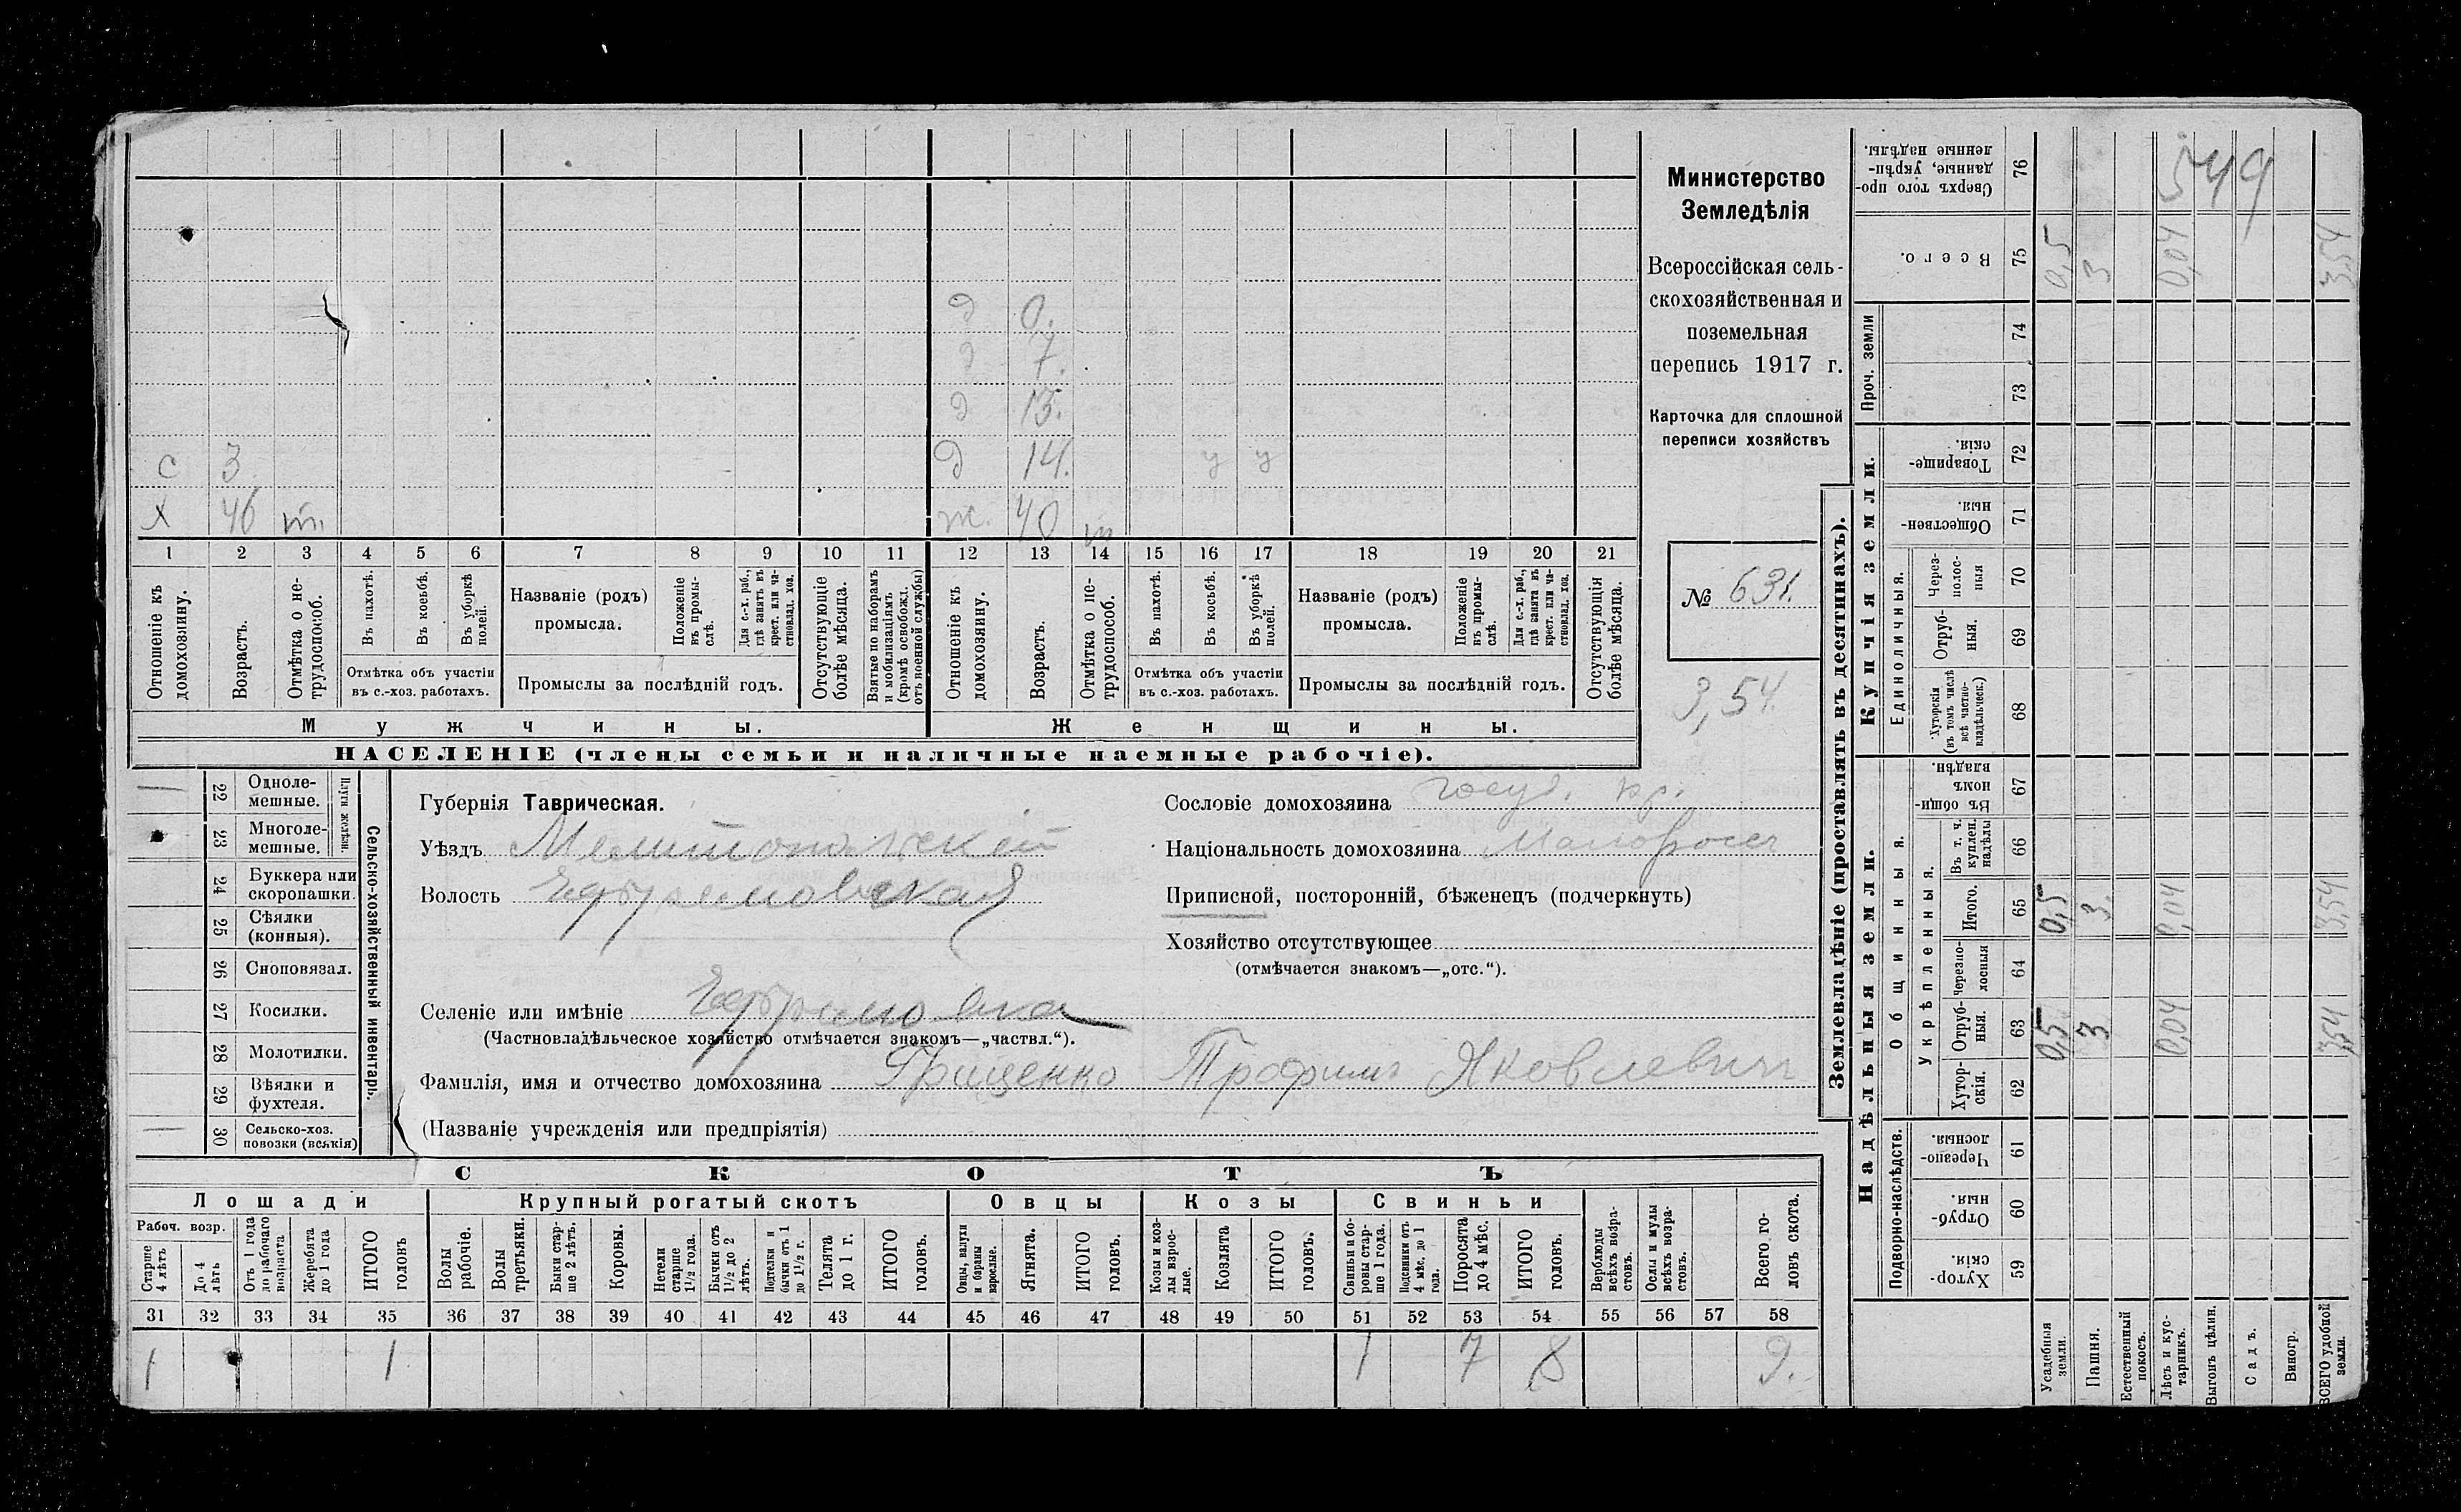 Министерство
Земледѣлія
Всероссійская сель-
скохозяйственная и
поземельная
перепись 1917 г.
Карточка для сплошной
переписи хозяйствъ
№ 631.
3,54
д 0.
д 7.
д 13.
с 3 д 14. у у
х 46 т. ж. 40 т
1 2 3 4 5 6 7 8 9 10 11 12 13 14 15 16 17 18 19 20 21
Отношеніе къ домохозяину.
Возрастъ.
Отмѣтка о не-трудоспособ.
Въ пахотѣ.
Въ косьбѣ.
Въ уборкѣ полей.
Отмѣтка объ участіи
въ с.-хоз. работахъ.
Названіе (родъ)
промысла.
Положеніе въ промы-слѣ.
Для с.-х. раб., гдѣ занятъ въ крест. или ча-стновлад. хоз.
Промыслы за послѣдній годъ.
Отсутствующіе болѣе мѣсяца.
Взятые по наборамъ и мобилизаціямъ (кромѣ освобожд. отъ военной службы)
Отношеніе къ домохозяину.
Возрастъ.
Отмѣтка о не-трудоспособ.
Въ пахотѣ.
Въ косьбѣ.
Въ уборкѣ полей.
Отмѣтка объ участіи
въ с.-хоз. работахъ.
Названіе (родъ)
промысла.
Положеніе въ промы-слѣ.
Для с.-х. раб., гдѣ занята въ крест. или ча-стновлад. хоз.
Промыслы за послѣдній годъ.
Отсутствующія болѣе мѣсяца.
Мужчины. Женщины.
НАСЕЛЕНІЕ (члены семьи и наличные наемные рабочіе).
Сельско-хозяйственный инвентарь.
Плуги желѣзн.
— 22 Одноле-мешные.
23 Многоле-мешные.
24 Буккера или скоропашки.
25 Сѣялки (конныя).
26 Сноповязал.
27 Косилки.
28 Молотилки.
29 Вѣялки и фухтеля.
— 30 Сельско-хоз. повозки (всякія)
Губернія Таврическая.
Уѣздъ Мелитопольскій
Волость Ефремовская
Селеніе или имѣніе Ефремовка
(Частновладѣльческое хозяйство отмѣчается знакомъ—„частвл.“).
Фамилія, имя и отчество домохозяина Грищенко Трофимъ Яковлевич
(Названіе учрежденія или предпріятія)
Сословіе домохозяина госуд. кр.
Національность домохозяина Малоросъ
Приписной, посторонній, бѣженецъ (подчеркнуть)
Хозяйство отсутствующее
(отмѣчается знакомъ—„отс.“).
СКОТЪ
Лошади Крупный рогатый скотъ Овцы Козы Свиньи
Рабоч. возр.
Старше 4 лѣтъ
До 4 лѣтъ
Отъ 1 года до рабочаго возраста
Жеребята до 1 года
ИТОГО головъ
Волы рабочіе.
Волы третьяки.
Быки стар-ше 2 лѣтъ.
Коровы.
Нетели старше 1½ года.
Бычки отъ 1½ до 2 лѣтъ.
Подтелки и бычки отъ 1 до 1½ г.
Телята до 1 г.
ИТОГО головъ.
Овцы, валухи и бараны взрослые.
Ягнята.
ИТОГО головъ.
Козы и коз-лы взрос-лые.
Козлята
ИТОГО головъ.
Свиньи и бо-ровы стар-ше 1 года.
Подсвинки отъ 4 мѣс. до 1 года.
Поросята до 4 мѣс.
ИТОГО головъ.
Верблюды всѣхъ возра-стовъ.
Ослы и мулы всѣхъ возра-стовъ.
Всего го-ловъ скота.
31 32 33 34 35 36 37 38 39 40 41 42 43 44 45 46 47 48 49 50 51 52 53 54 55 56 57 58
1 1 1 7 8 9.
Землевладѣніе (проставлять въ десятинахъ).
Надѣльныя земли. Купчія земли.
Подворно-наслѣдств.
Общинныя.
Укрѣпленныя.
Единоличныя.
Проч. земли
Хутор-скія. 59
Отруб-ныя. 60
Черезпо-лосныя. 61
Хутор-скія. 62
Отруб-ныя. 63
Черезпо-лосныя 64
Итого. 65
Въ т. ч. куплен. надѣлы 66
Въ общин-номъ владѣн. 67
Хуторскія (въ томъ числѣ всѣ частно-владѣльческ.) 68
Отруб-ныя. 69
Через-полос-ныя 70
Обществен-ныя. 71
Товарище-скія. 72
73
74
Всего. 75
Сверхъ того про-данные, укрѣп-ленные надѣлы. 76
Усадебныя земли. 0,5 0,5 0,5
Пашня. 3 3 3
Естественный покосъ.
Лѣсъ и кус-тарникъ. 0,04 0,04 0,04
Выгонъ цѣлин.
Садъ.
Виногр.
ВСЕГО удобной земли. 3,54 3,54 3,54
549